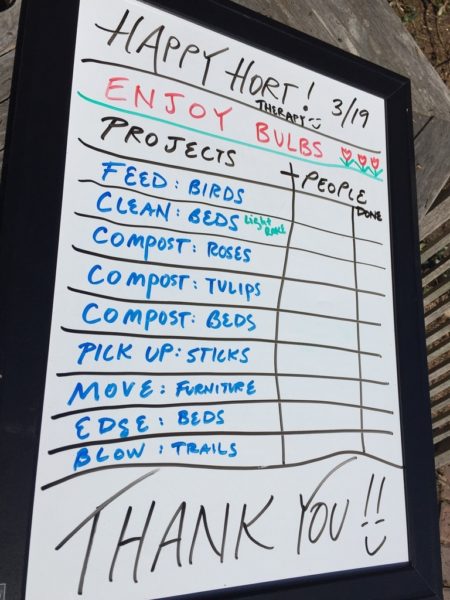 HAPPY HORT! 3/19
THERAPY
ENJOY BULBS
PROJECTS + PEOPLE
DONE
FEED: BIRDS
CLEAN: BEDS Light RAKE
COMPOST: ROSES
COMPOST: TULIPS
COMPOST: BEDS
PICK UP: STICKS
MOVE: FURNITURE
EDGE: BEDS
BLOW: TRAILS
THANK YOU!!